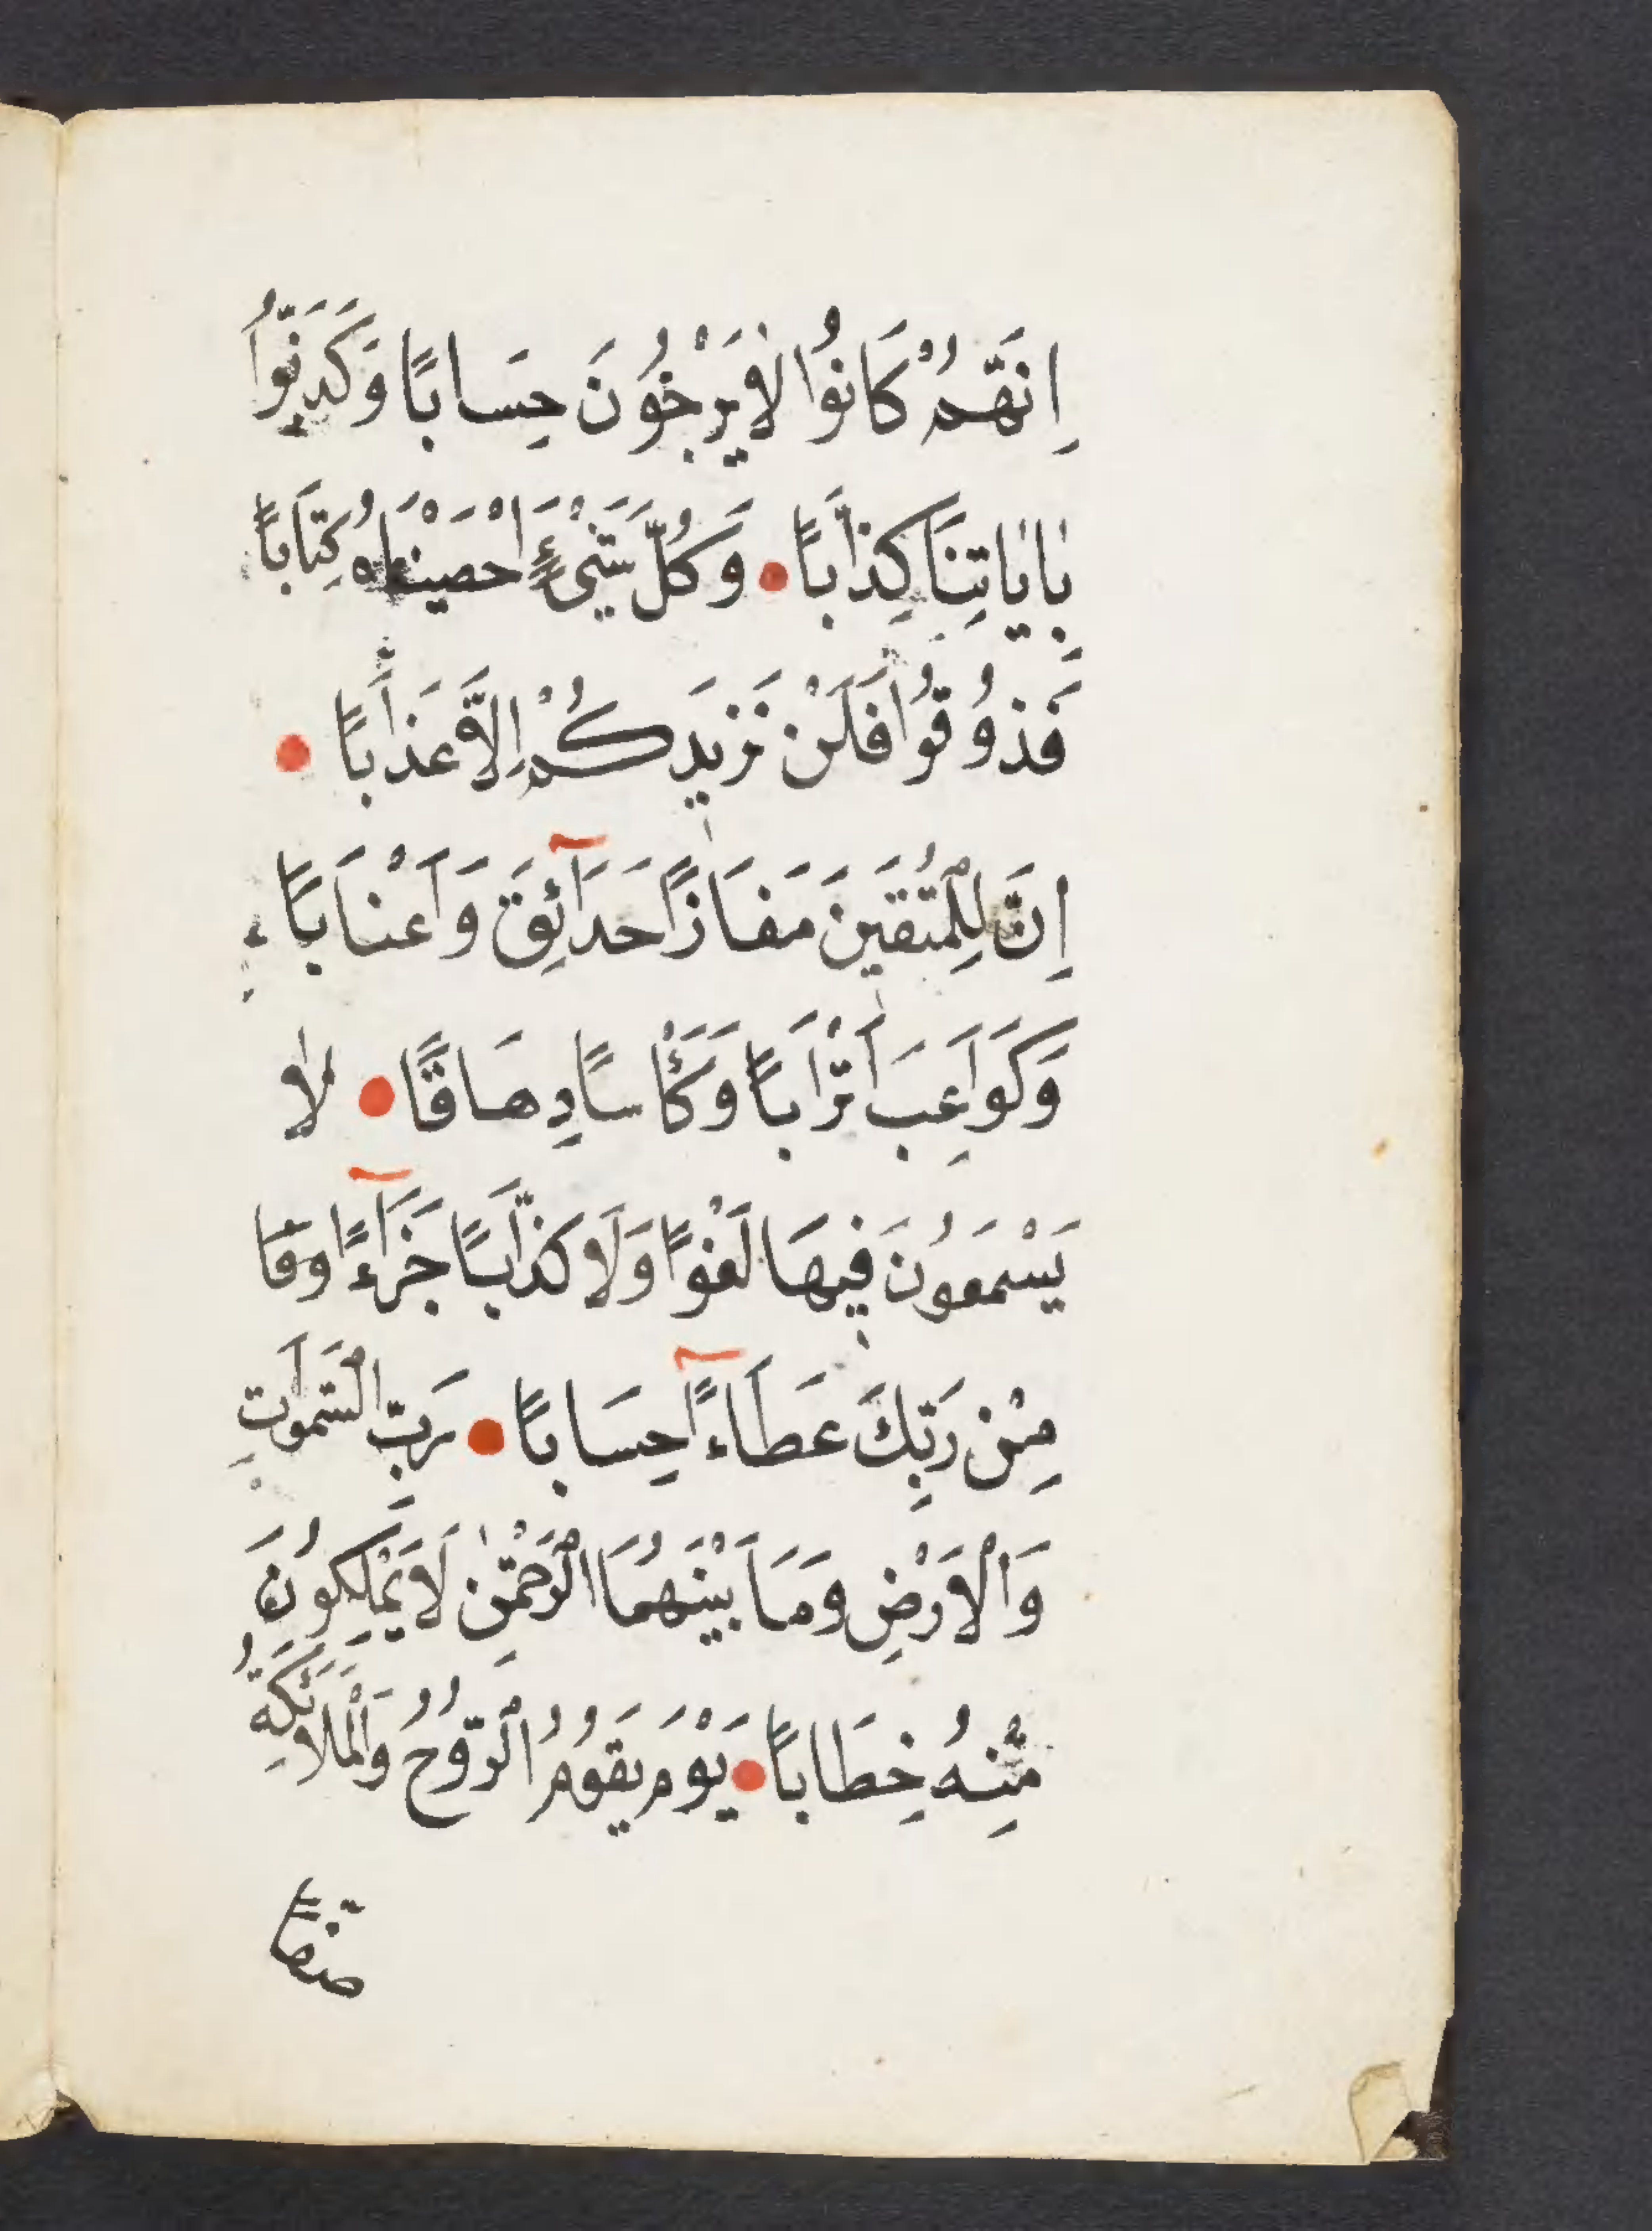 اِنَّهُمْ كَانُوا لَا يَرْجُونَ حِسَابًا وَكَذَّبُوا
بِاٰيَاتِنَا كِذَّابًا • وَكُلَّ شَيْءٍ اَحْصَيْنَاهُ كِتَابًا
فَذُوقُوا فَلَنْ نَزِيدَكُمْ اِلَّا عَذَابًا •
اِنَّ لِلْمُتَّقِينَ مَفَازًا حَدَآئِقَ وَاَعْنَابًا
وَكَوَاعِبَ اَتْرَابًا وَكَأْسًا دِهَاقًا • لَا
يَسْمَعُونَ فِيهَا لَغْوًا وَلَا كِذَّابًا جَزَآءً وَفَا
مِنْ رَبِّكَ عَطَآءً حِسَابًا • رَبِّ السَّمٰوَاتِ
وَالْاَرْضِ وَمَا بَيْنَهُمَا الرَّحْمٰنِ لَا يَمْلِكُونَ
مِنْهُ خِطَابًا • يَوْمَ يَقُومُ الرُّوحُ وَالْمَلَائِكَةُ
صَفًّا